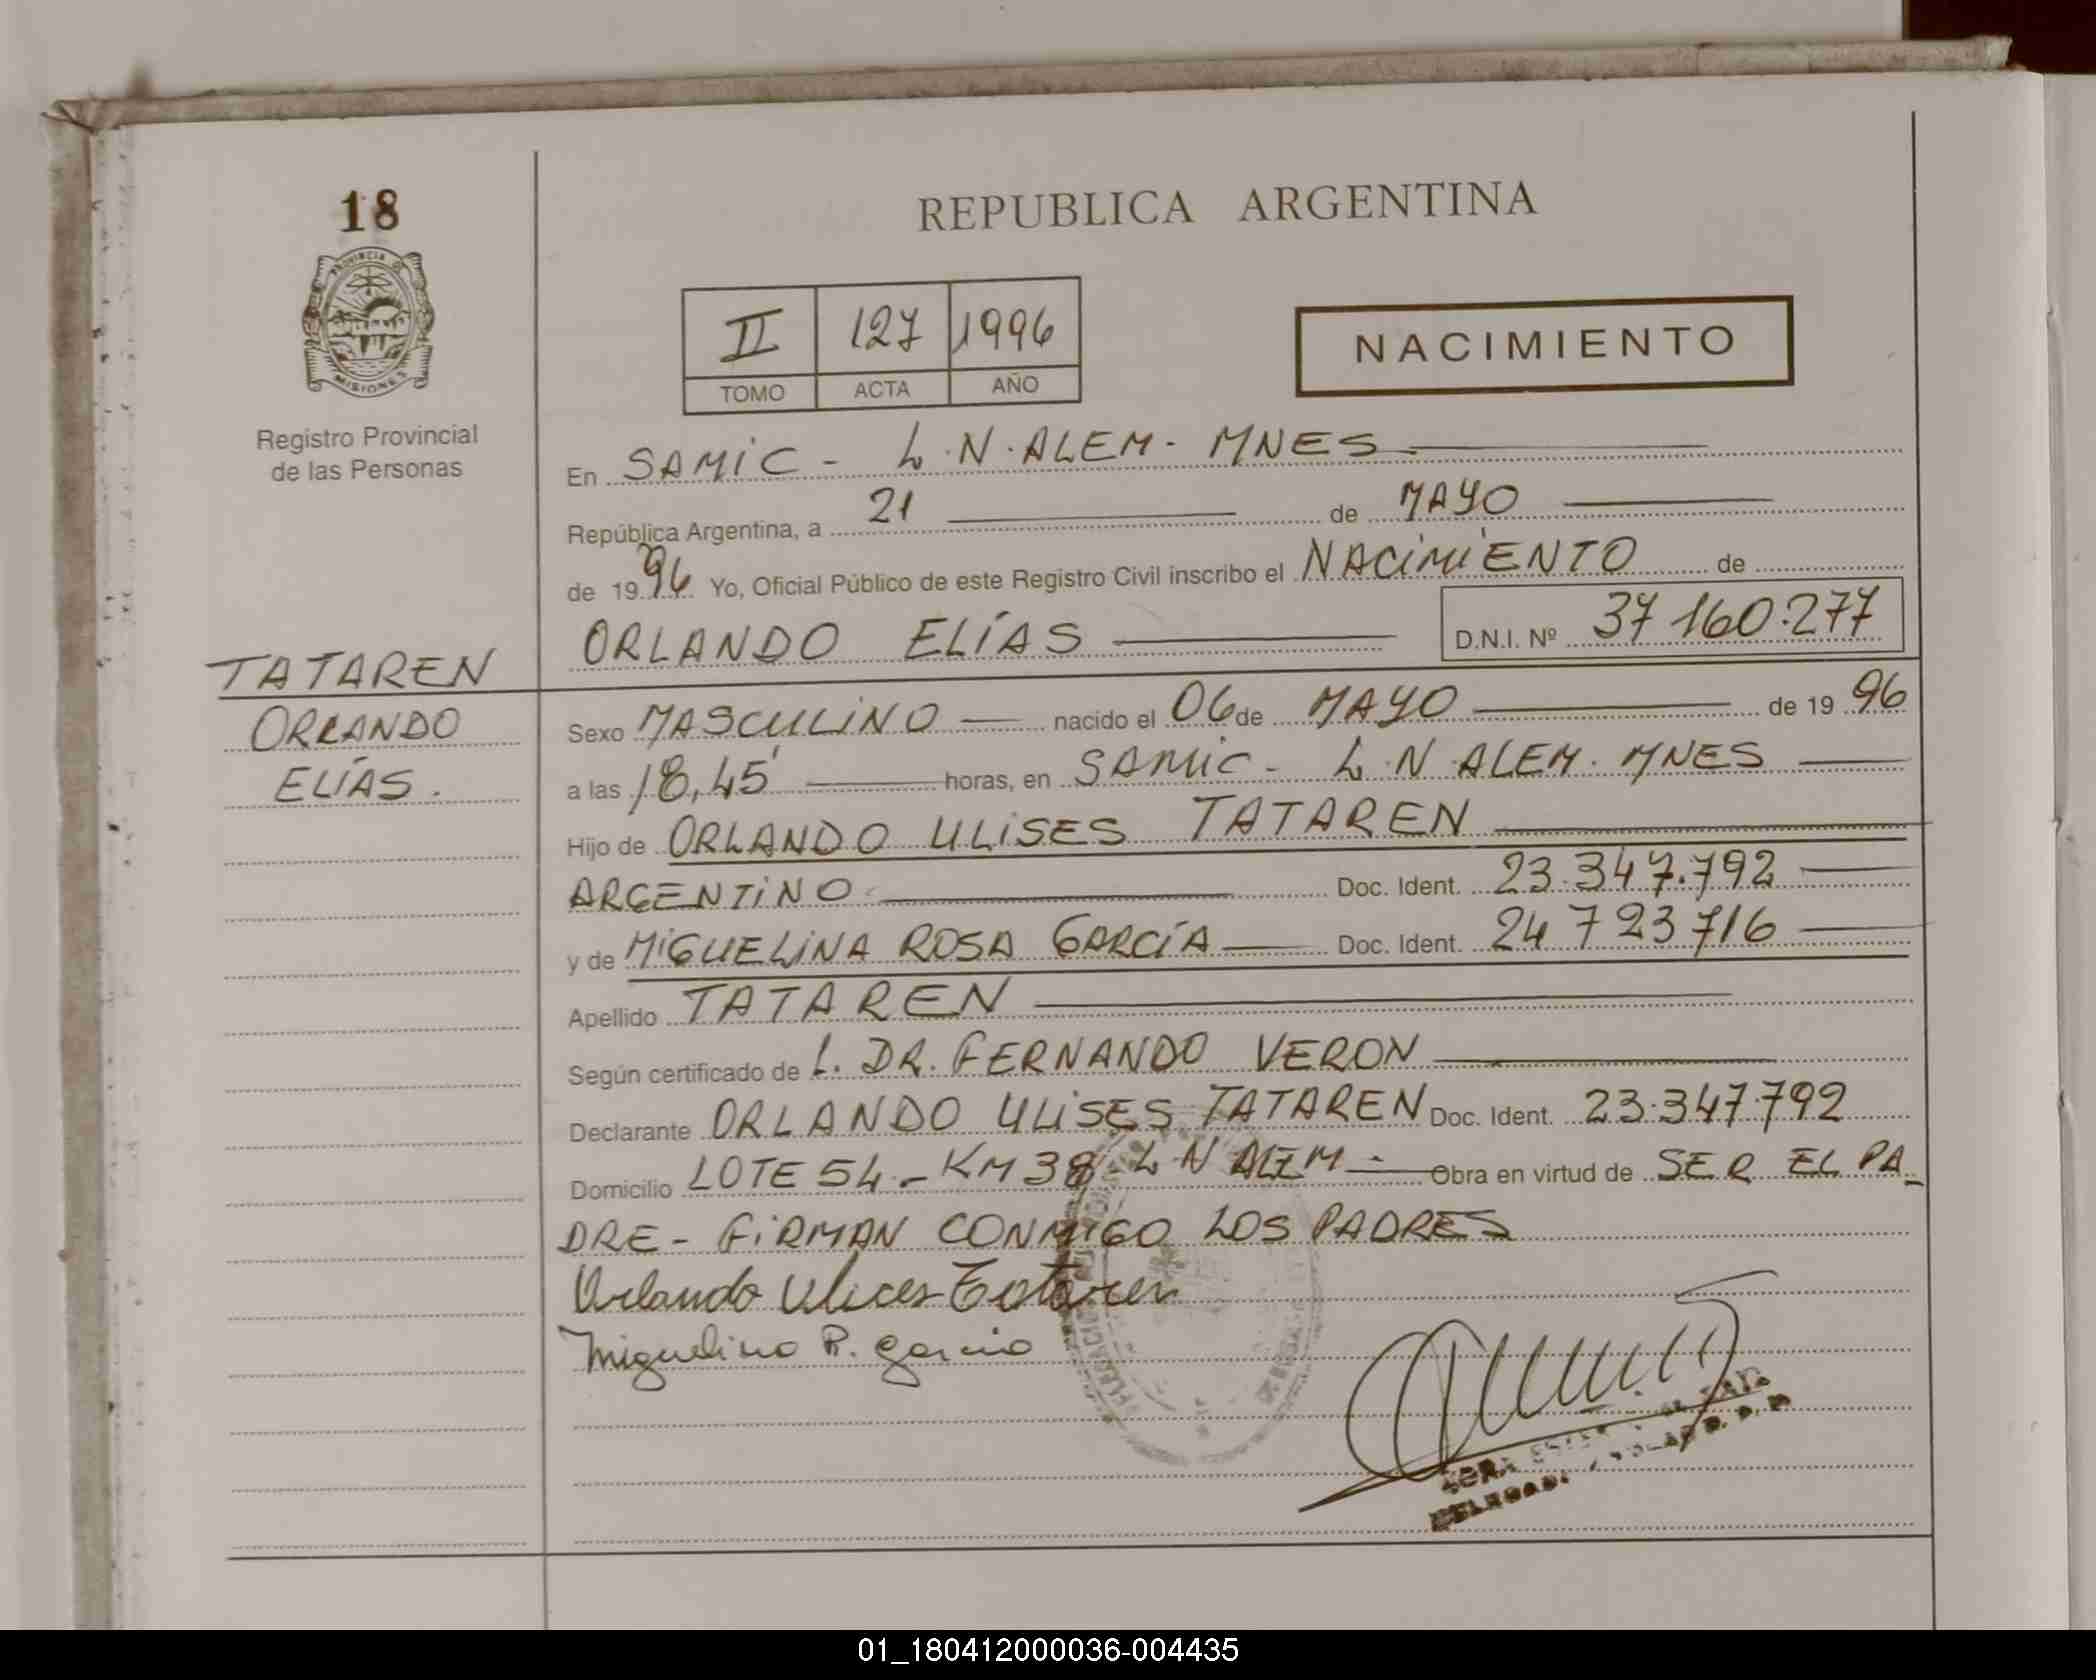 18
PROVINCIA DE
MISIONES
Registro Provincial
de las Personas
TATAREN
ORLANDO
ELÍAS.
REPUBLICA ARGENTINA
II 127 1996
TOMO ACTA AÑO
NACIMIENTO
En SAMIC - L.N.ALEM - MNES
República Argentina, a 21 de MAYO
de 1996 Yo, Oficial Público de este Registro Civil inscribo el NACIMIENTO de
ORLANDO ELÍAS D.N.I. Nº 37 160.277
Sexo MASCULINO nacido el 06 de MAYO de 1996
a las 18,45 horas, en SAMIC - L.N ALEM. MNES
Hijo de ORLANDO ULISES TATAREN
ARGENTINO Doc. Ident. 23.347.792
y de MIGUELINA ROSA GARCÍA Doc. Ident. 24 723 716
Apellido TATAREN
Según certificado de L. DR. FERNANDO VERON
Declarante ORLANDO ULISES TATAREN Doc. Ident. 23.347.792
Domicilio LOTE 54 - KM 38 L N ALEM - Obra en virtud de SER EL PA-
DRE - FIRMAN CONMIGO LOS PADRES
Orlando Ulices Tataren
Miguelina R. Garcia
01_180412000036-004435